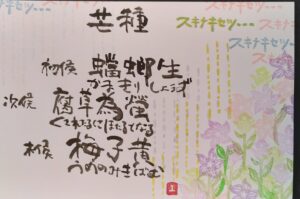 芒種
スキナキセツ・・・
スキナキセツ・・・
スキナキセツ・・・
初候 蟷螂生
かまきりしょうず
次候 腐草為螢
くされたるくさほたるとなる
末候 梅子黄
うめのみきばむ